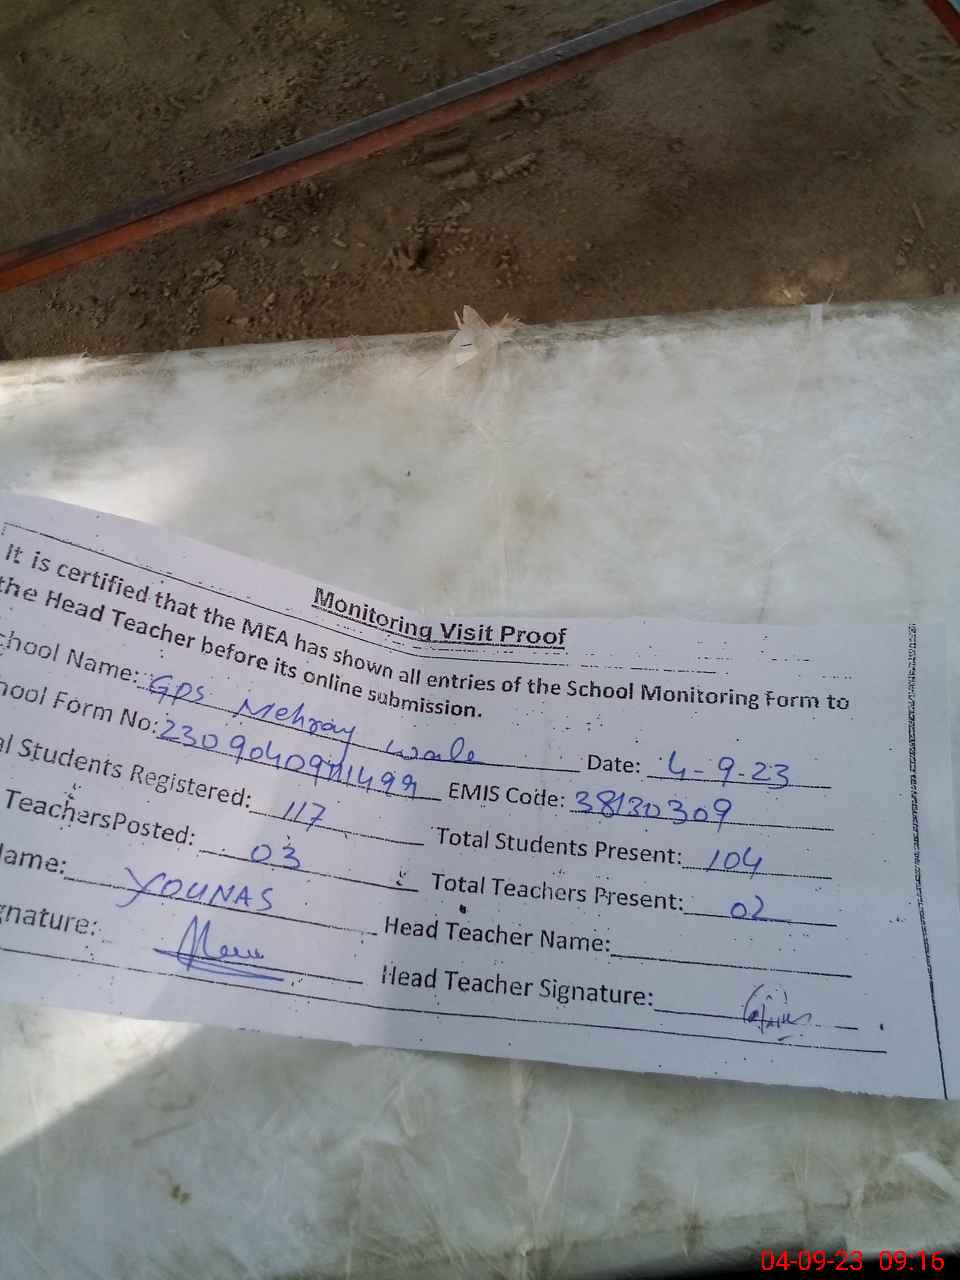 Monitoring Visit Proof
It is certified that the MEA has shown all entries of the School Monitoring Form to
the Head Teacher before its online submission.
chool Name: GPS Mehray wale Date: 4-9-23
hool Form No: EMIS Code: 38130309
al Students Registered: 117 Total Students Present: 104
TeachersPosted: 03 Total Teachers Present: 02
ame: YOUNAS Head Teacher Name:
gnature: Head Teacher Signature:
04-09-23 09:16